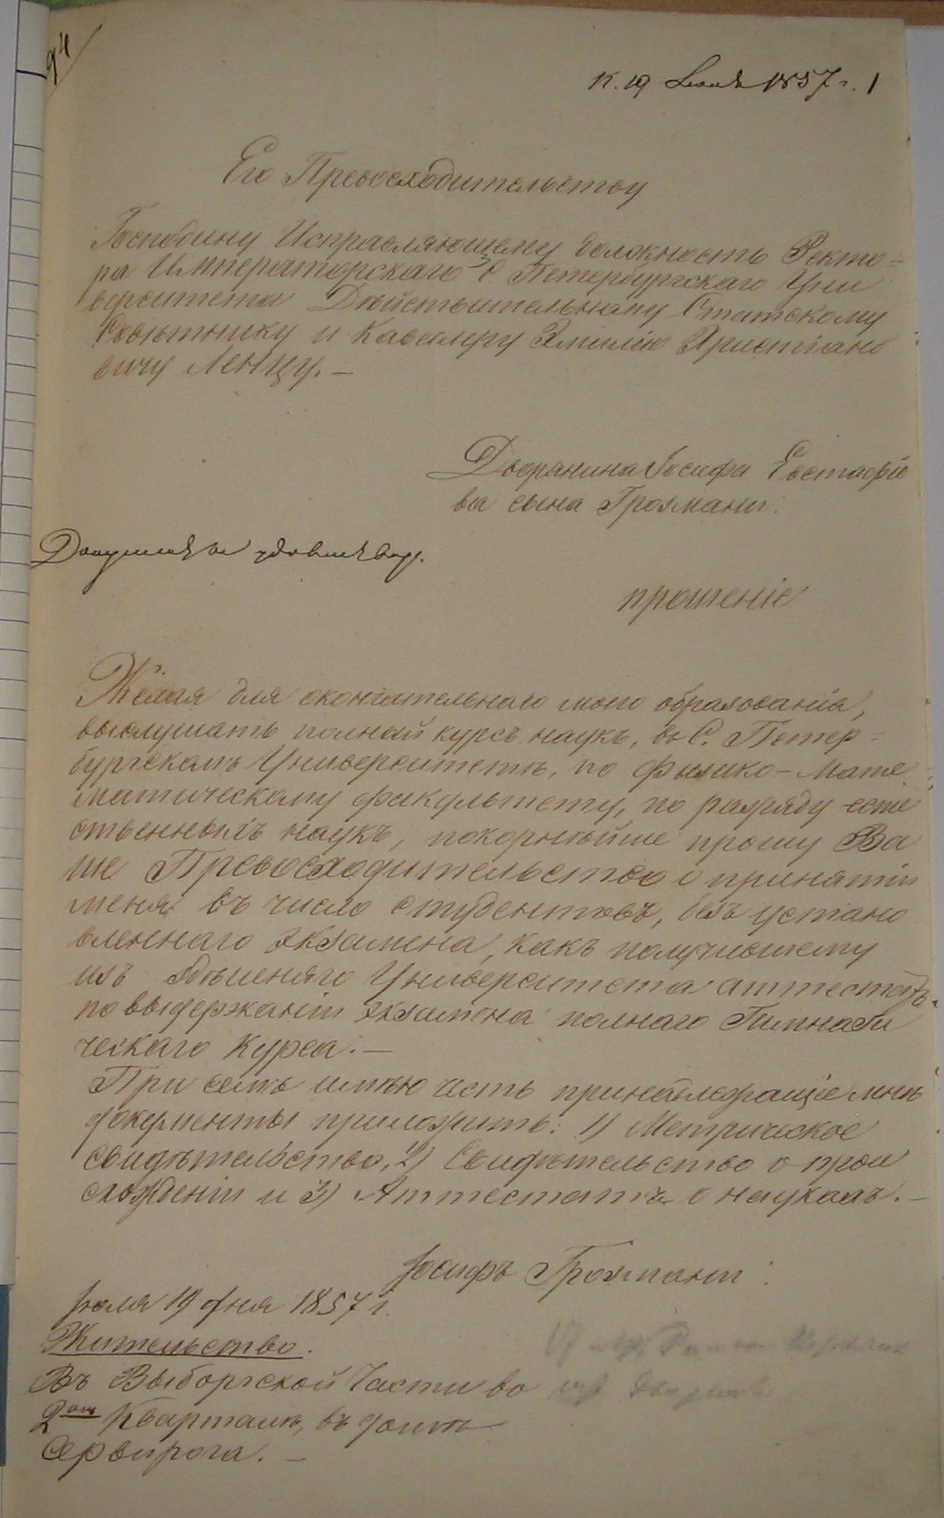 94
19 Июля 1857 г. 1
Его Превосходительству
Господину Исправляющему должность Ректо=
ра Императорскаго С. Петербургскаго Уни
верситета Действительному Статскому
Советнику и Кавалеру Эмилію Христіано
вичу Ленцу. —
Дворянина Іосифа Евстафіе
ва сына Грохмант:
прошеніе
Желая для окончательнаго моего образованія,
выслушать полной курсъ наукъ, въ С. Петер=
бургскомъ Университетѣ, по физико-Мате
матическому факультету, по разряду есте
ственныхъ наукъ, покорнѣйше прошу Ва
ше Превосходительство о принятіи
меня въ число студентовъ, безъ устано
вленнаго экзамена, какъ получившему
изъ здѣшняго Университета аттестатъ
по выдержаніи экзамена полнаго Гимнази
ческаго Курса. —
При семъ имѣю честь принадлежащіе мнѣ
документы приложить: 1) Метрическое
свидѣтельство, 2) Свидѣтельство о прои
схожденіи и 3) Аттестатъ о наукахъ. —
Іосифъ Грохмант:
Іюля 19 дня 1857 г.
Жительство.
Въ Выборгской Части во
2ом Кварталѣ, въ домѣ